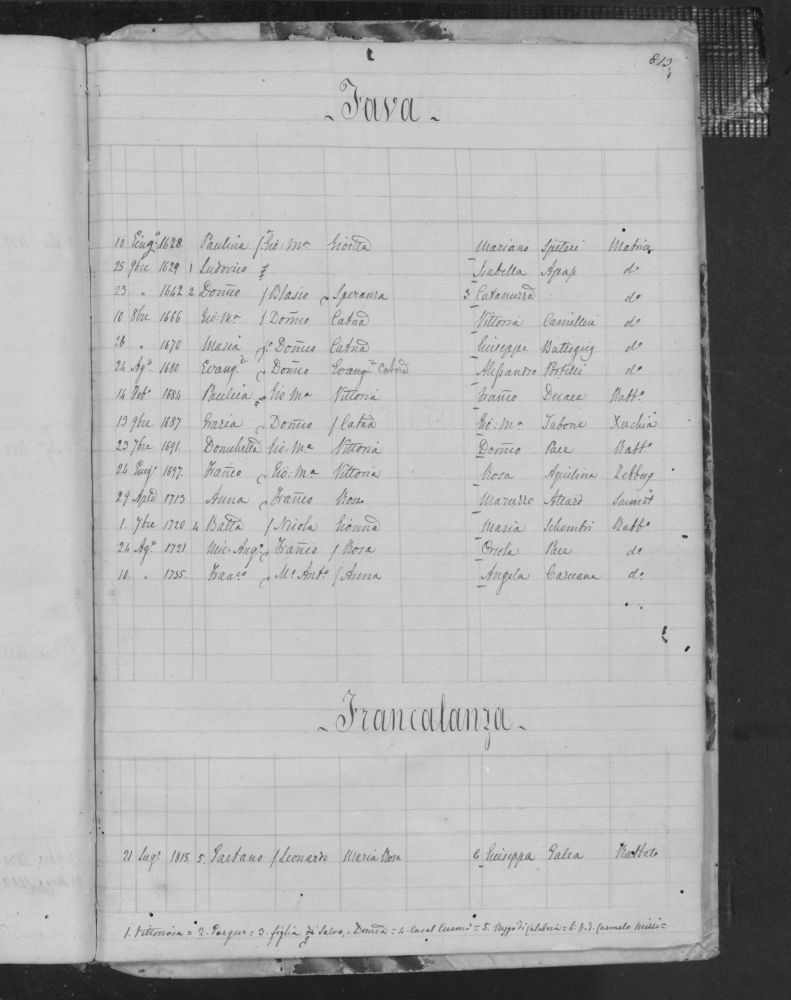 813
Fava
10 Giug.º 1628 Paulina Gio: Mª Mariano Spiteri Matrice
25 9bre 1629 1 Ludovico Isabella Apap dº
23 " 1642 2 Domco Blasio Speranza 3 Catarina dº
10 8bre 1666 Gio: Mª Domco Catna Vittoria Camilleri dº
26 " 1670 Maria Domco Catna Giuseppe Buttigieg dº
24 Agº 1680 Evangta Domco Evangta Catna Alessandro dº
14 Febº 1684 Paulica Gio Mª Vittoria Franco Rabbº
19 9bre 1687 Grazia Domco Catna Gio: Mª Tabone Xuchia
23 7bre 1691 Gio: Mª Vittoria Domco Pace Rabbº
24 Giugº 1697 Franco Gio: Mª Vittoria Rosa Aquilina Zebbug
29 Aple 1713 Anna Franco Rosa Attard Sannat
1. 7bre 1720 4 Batta Nicola Gionna Maria Schembri Rabbº
24 Agº 1721 Mic. Angº Franco Rosa Orsola Pace dº
10. " 1735 Francº Mº Antº Anna Angela Caruana dº
Francalanza
21 Lugº 1815 5. Gaetano Leonardo Maria Rosa 6 Giuseppa Galea Rabbato
1. Vittoriosa = 2. Porgur = 3. figlia di Salvo, = 4. Casal = 5. Reggio di Calabria = 6. Carmelo